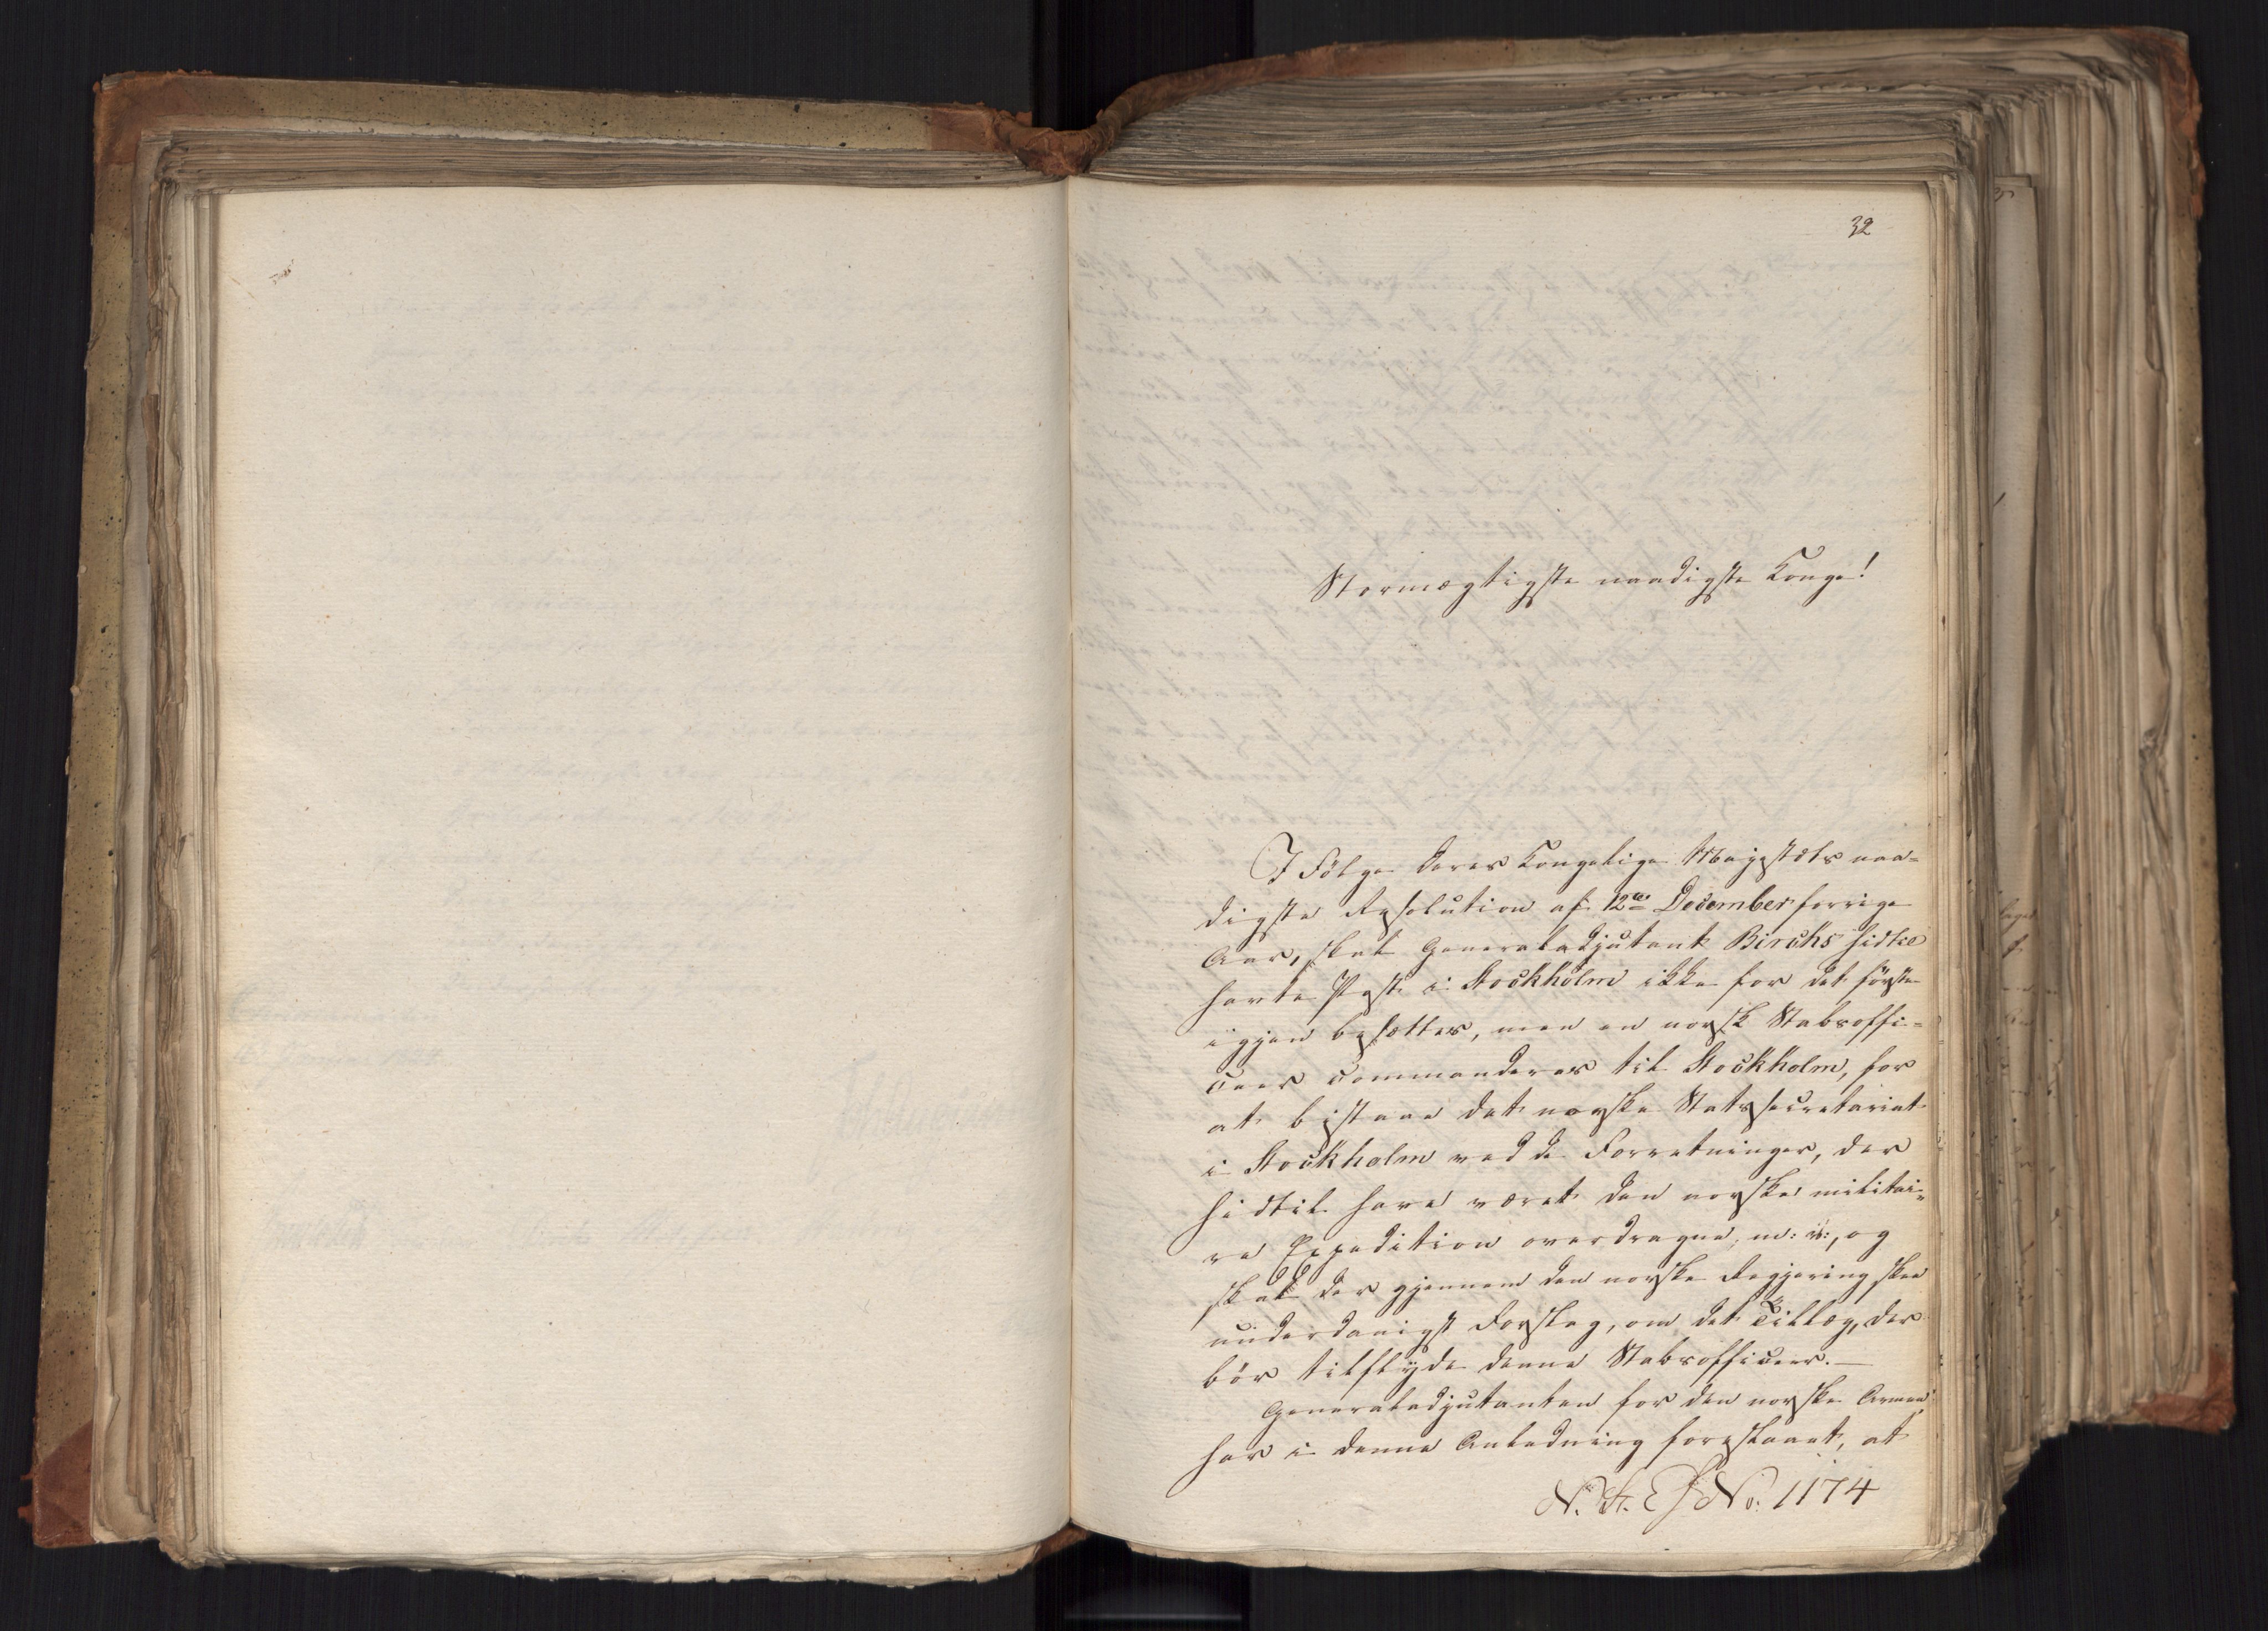 32
Stormægtigste naadigste Konge!
I Følge Deres Kongelige Majestæts naa=
digste Resolution af 12te December forrige
Aar, skal Generaladjutant Birchs hidtil
havte Post i Stockholm ikke for det første
igjen besættes, men en norsk Stabsoffi=
ceer commanderes til Stockholm, for
at bistaae det norske Statssecretariat
i Stockholm ved de Forretninger, der
hidtil have været den norske militai=
re Expedition overdragne, m: v:, og
skal der gjennem den norske Regjering skee
underdanigst Forslag, om det Tillæg, der
bør tilflyde denne Stabsofficeer.—
Generaladjutanten for den norske Armee
har i denne Anledning foreslaaet, at
N. St. E No: 1174